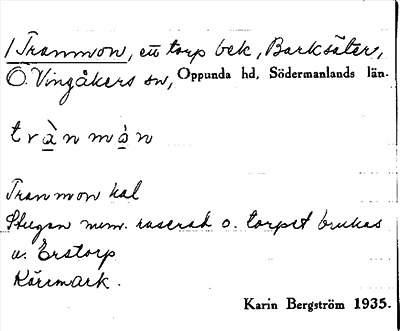 1 Tranmon, ett torp bek, Barksäter,
Ö. Vingåkers sn, Oppunda hd, Södermanlands län.
trànmòn
Tranmon kal
Stugan num. raserad o. torpet brukas
u. Erstorp
Körrmark.
Karin Bergström 1935.